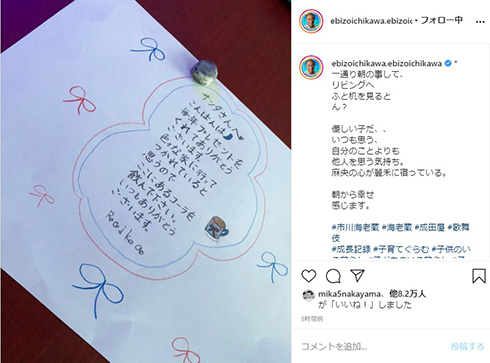 サンタさんへ
こんばんは
毎年プレゼントを
くれてありがとう
ございます。
色々な家に行って
つかれていると
思うので
ここにあるコーラを
飲んで下さい。
いつもありがとう
ございます。
ebizoichikawa.ebizoic • フォロー中
ebizoichikawa.ebizoichikawa
一通り朝の事して、
リビングへ
ふと机を見ると
ん?
優しい子だ、、
いつも思う、
自分のことよりも
他人を思う気持ち。
麻央の心が麗禾に宿っている。
朝から幸せ
感じます。
#市川海老蔵 #海老蔵 #成田屋 #歌舞
伎
#成長記録 #子育てぐらむ #子供のい
mika5nakayama、他8.2万人
が「いいね!」しました
5時間前
コメントを追加...
投稿する